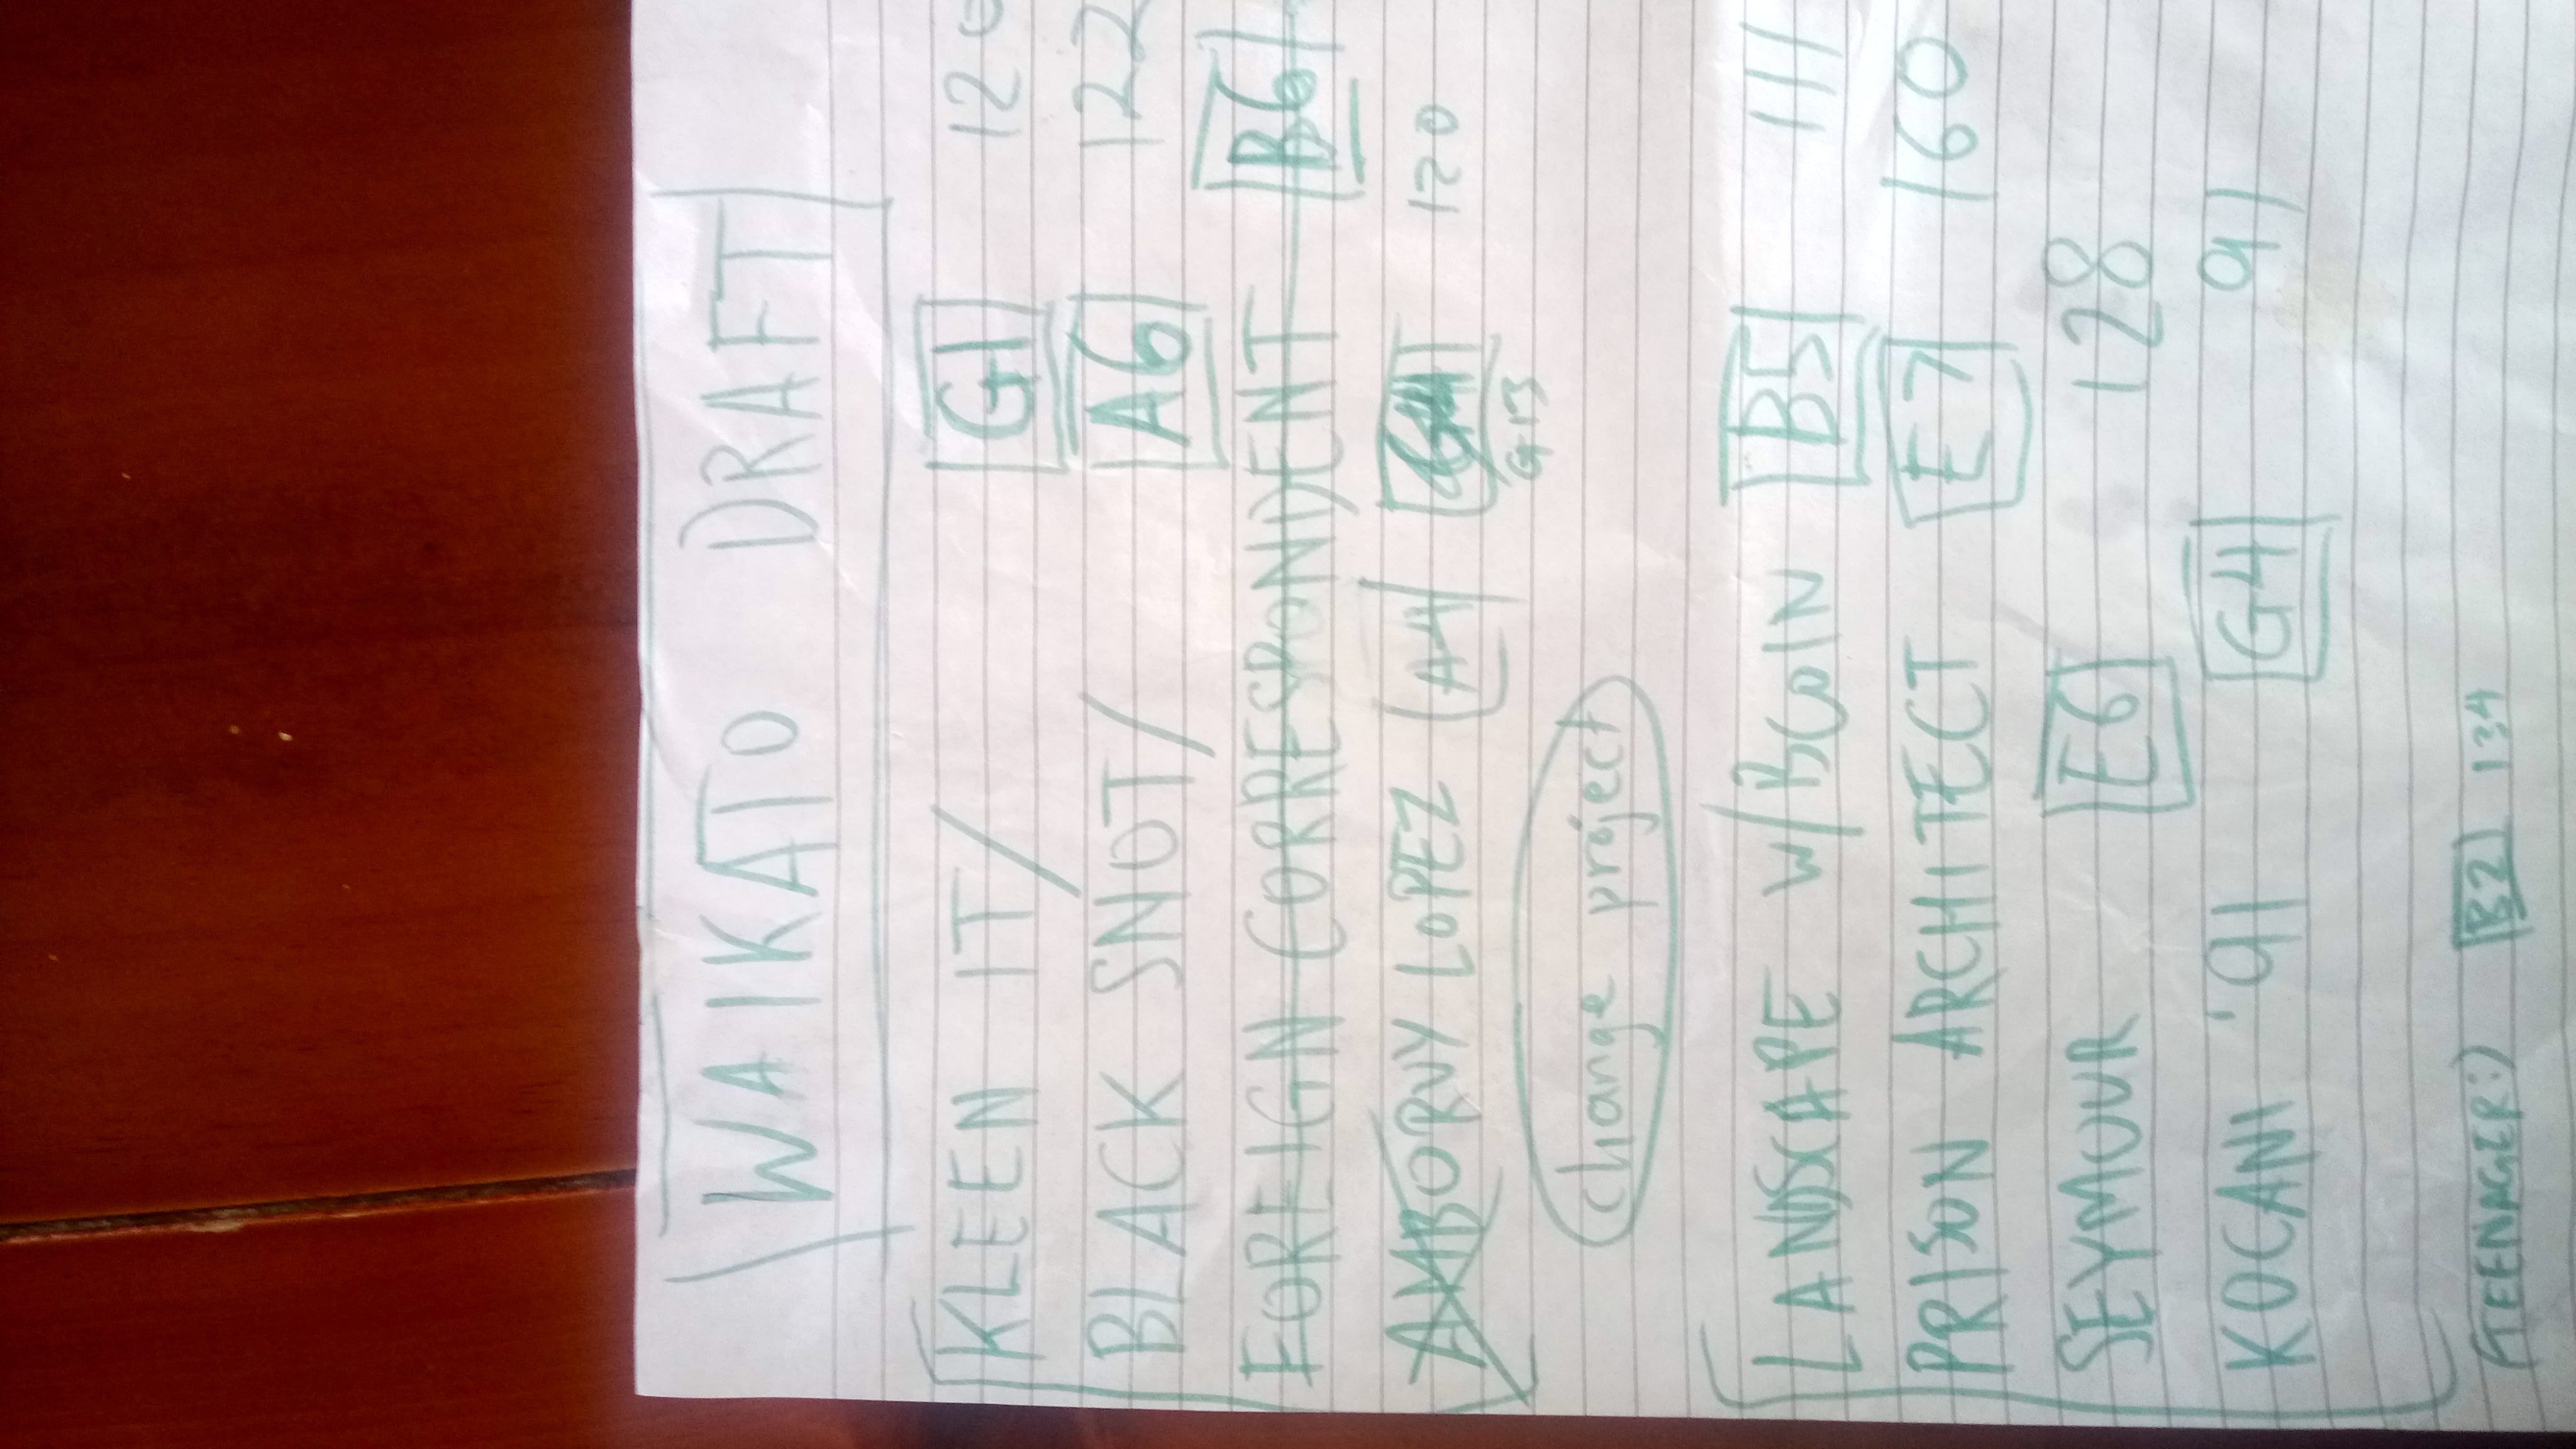 WAIKATO DRAFT
KLEEN IT/ G1 120
BLACK SNOT/ A6 122
FOREIGN CORRESPONDENT B6
LOPEZ A4 120
G#3
change project
LANDSCAPE W/ BCOIN B5 111
PRISON ARCHITECT E7 160
SEYMOUR E6 128
KOCANI '91 G4 91
(TEENAGER:) B2 134